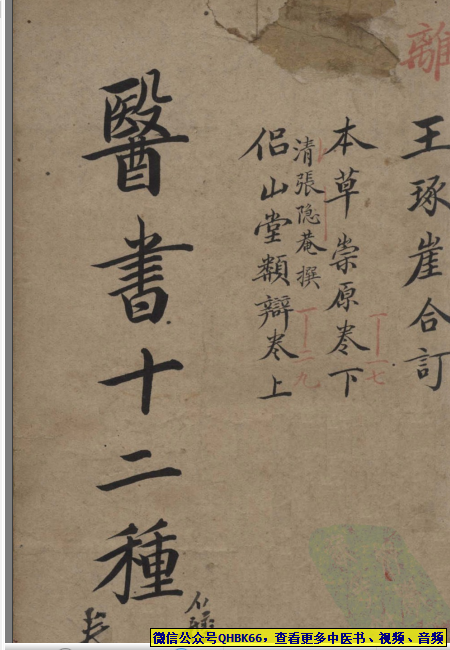 離
王琢崖合訂
本草崇原卷下
清張隐菴撰
侣山堂類辯卷上
醫書十二種
微信公众号QHBK66，查看更多中医书、视频、音频